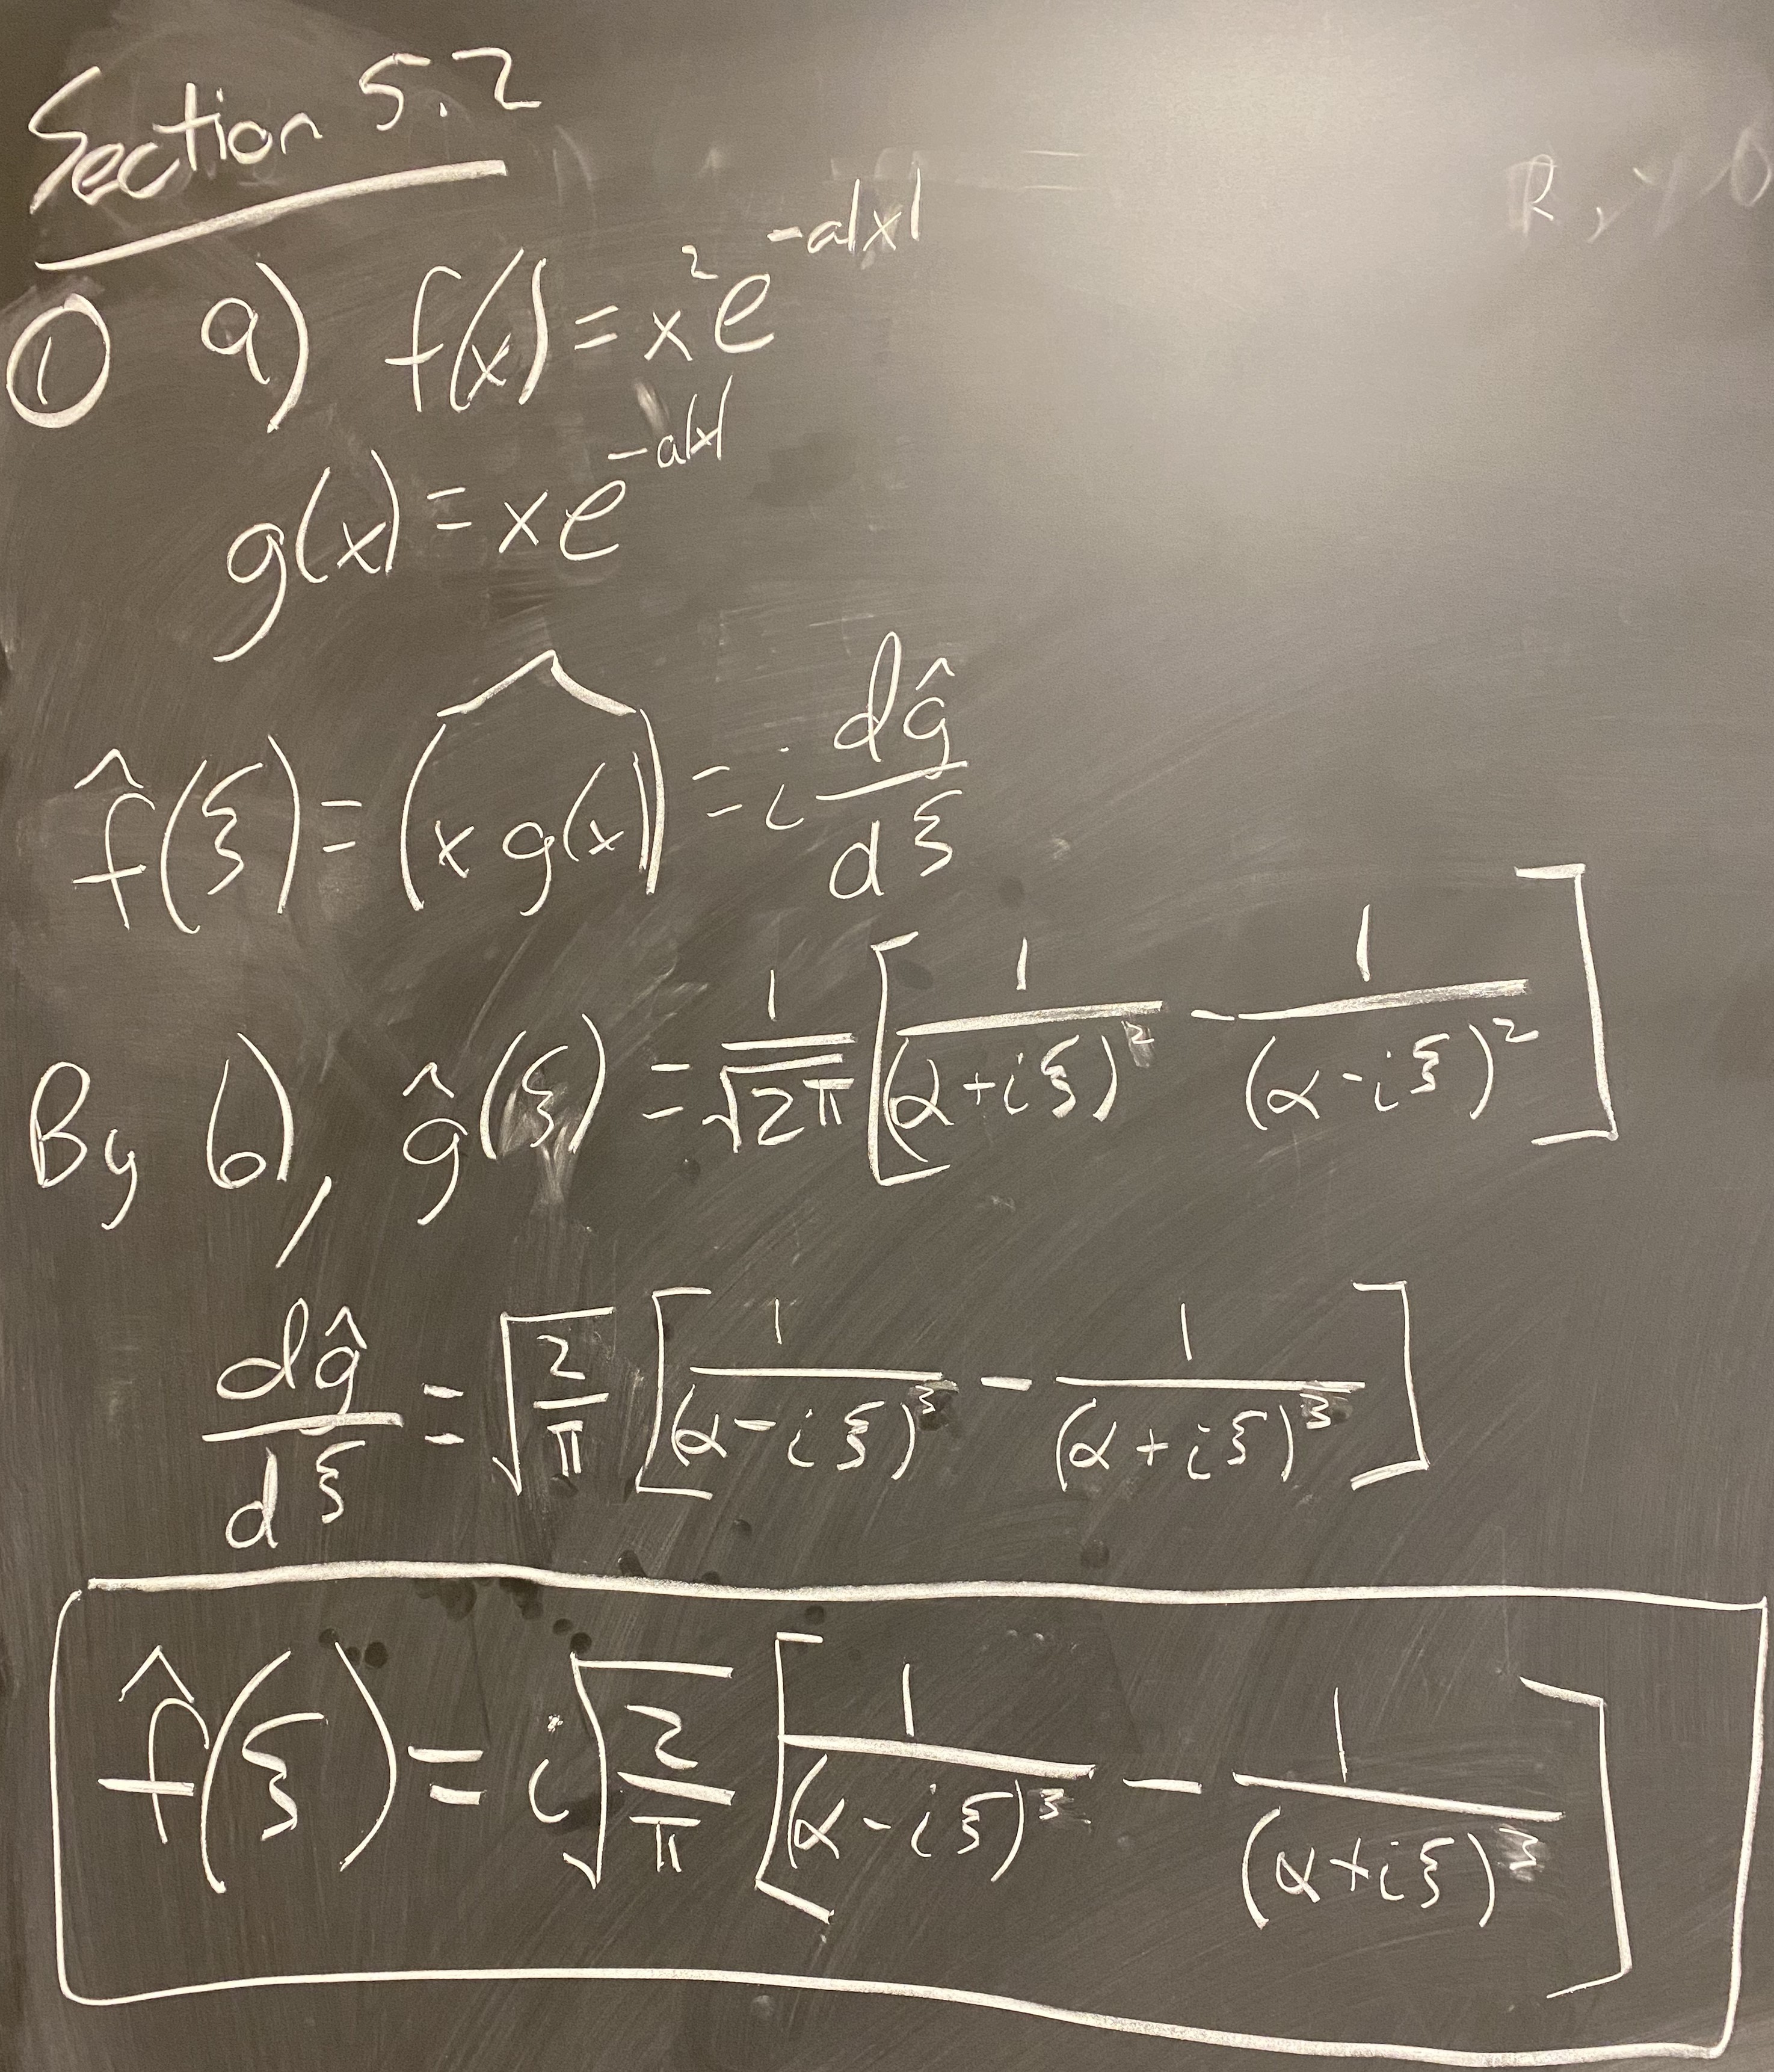 Section 5.2
① a) f(x) = x²e^{-a|x|}
g(x) = xe^{-a|x|}
f̂(ξ) = \widehat{(x g(x))} = i \frac{dĝ}{dξ}
By b), ĝ(ξ) = \frac{1}{\sqrt{2π}} [ \frac{1}{(α+iξ)^2} - \frac{1}{(α-iξ)^2} ]
\frac{dĝ}{dξ} = \sqrt{\frac{2}{π}} [ \frac{1}{(α-iξ)^3} - \frac{1}{(α+iξ)^3} ]
f̂(ξ) = i\sqrt{\frac{2}{π}} [ \frac{1}{(α-iξ)^3} - \frac{1}{(α+iξ)^3} ]